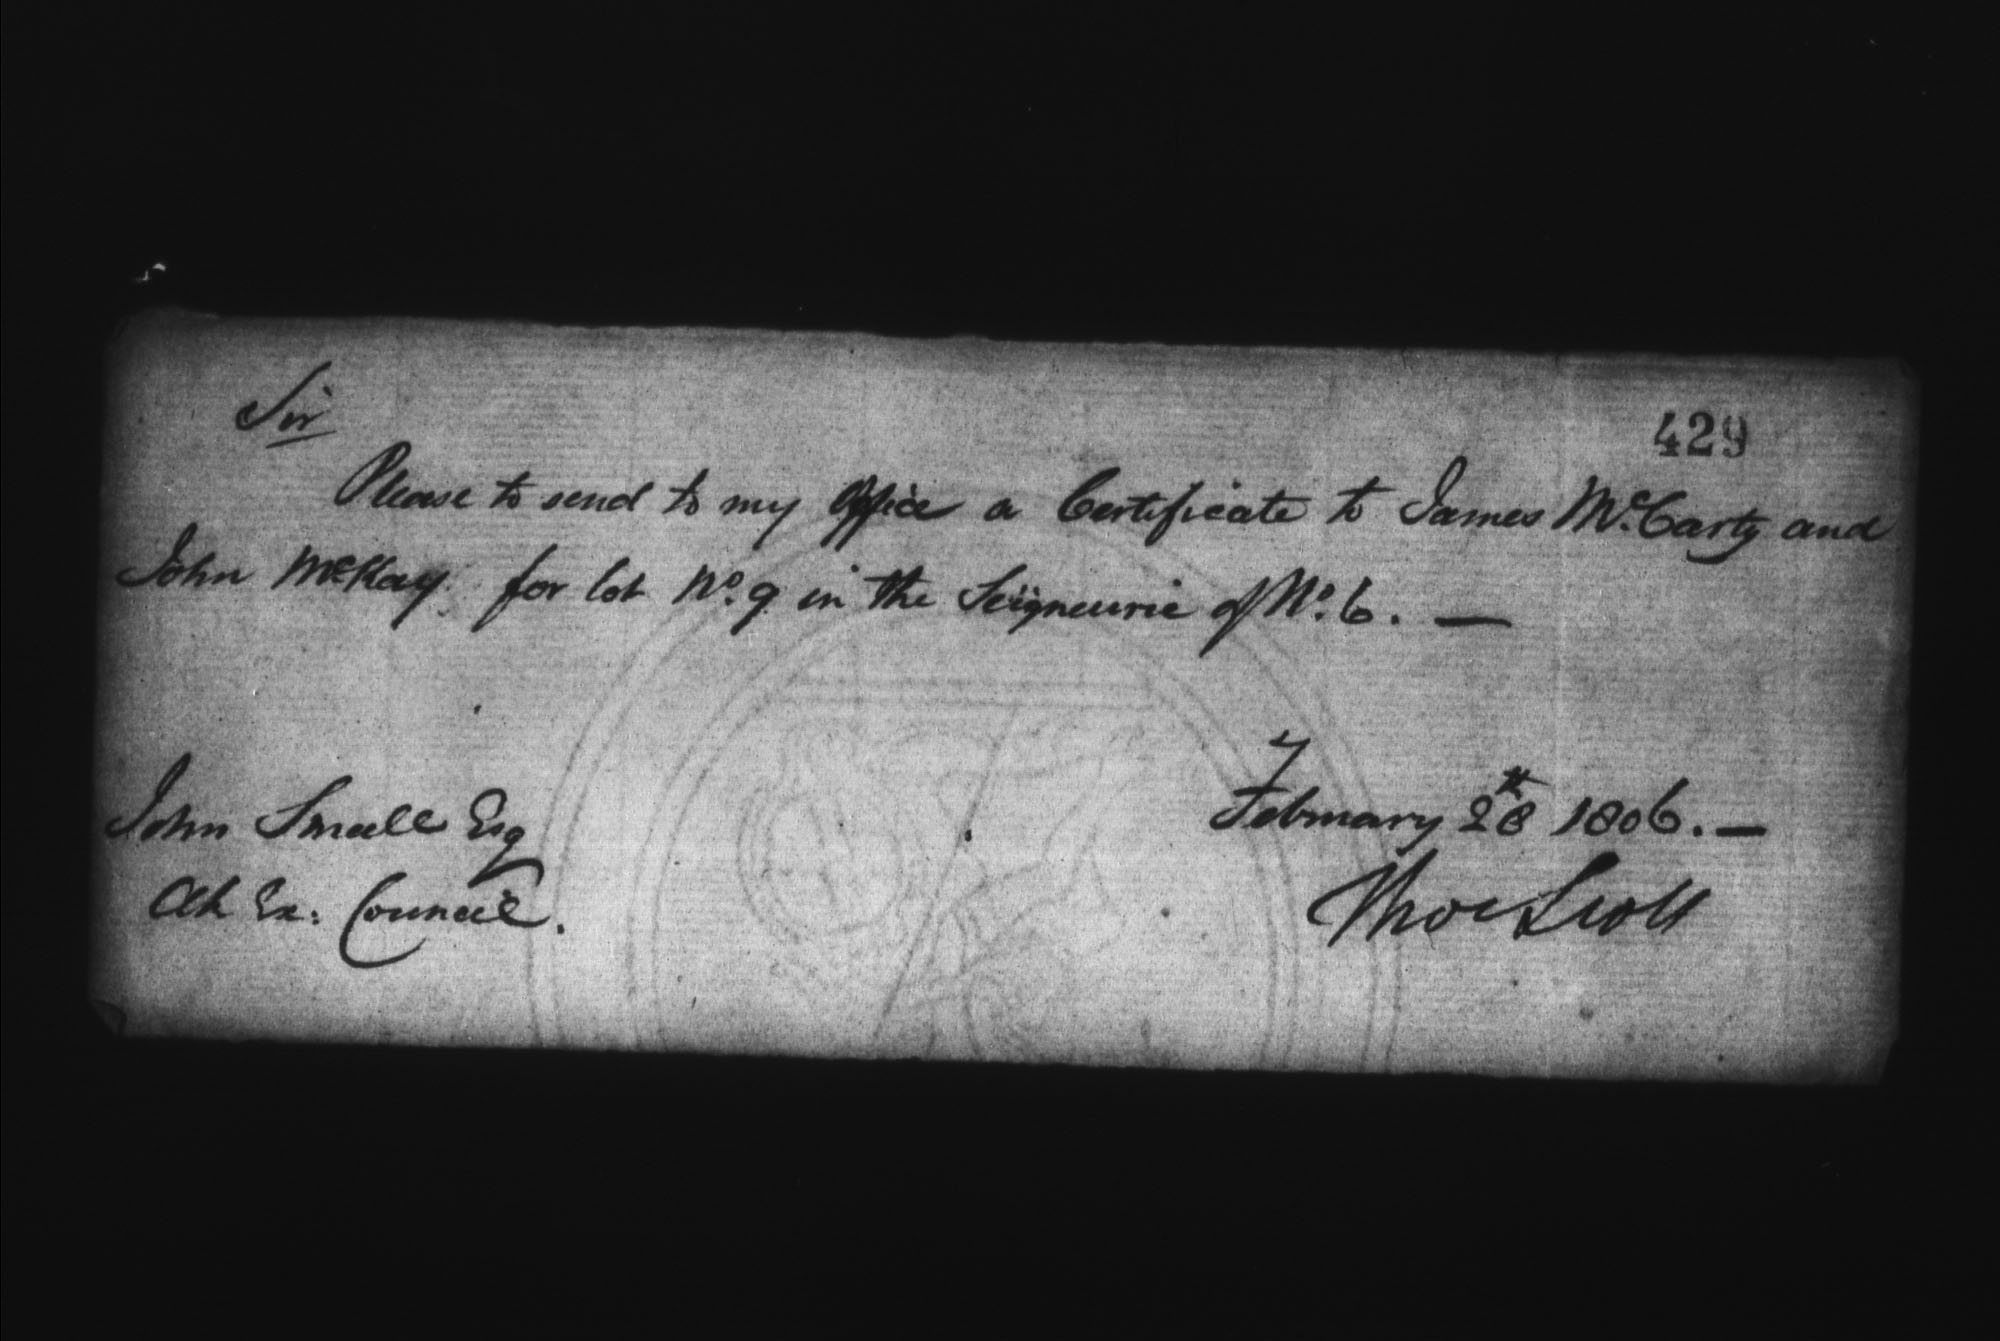 Sir
429
Please to send to my Office a Certificate to James McCarty and
John McKay for lot No. 9 in the Seigneurie of No. 6. —
February 28th 1806. —
John Small Esq
Clk Ex. Council.
Thos Scott